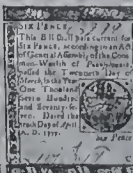 SIX PENCE.
This Bill shall pass current for
Six Pence, according to an Act
of General Assembly of the Com-
mon-Wealth of Pennsylvania
passed the Twentieth Day of
March, in the Year
One Thousand
Seven Hundred
and Seventy-se-
ven. Dated the
tenth Day of April
A. D. 1777.
Six Pence